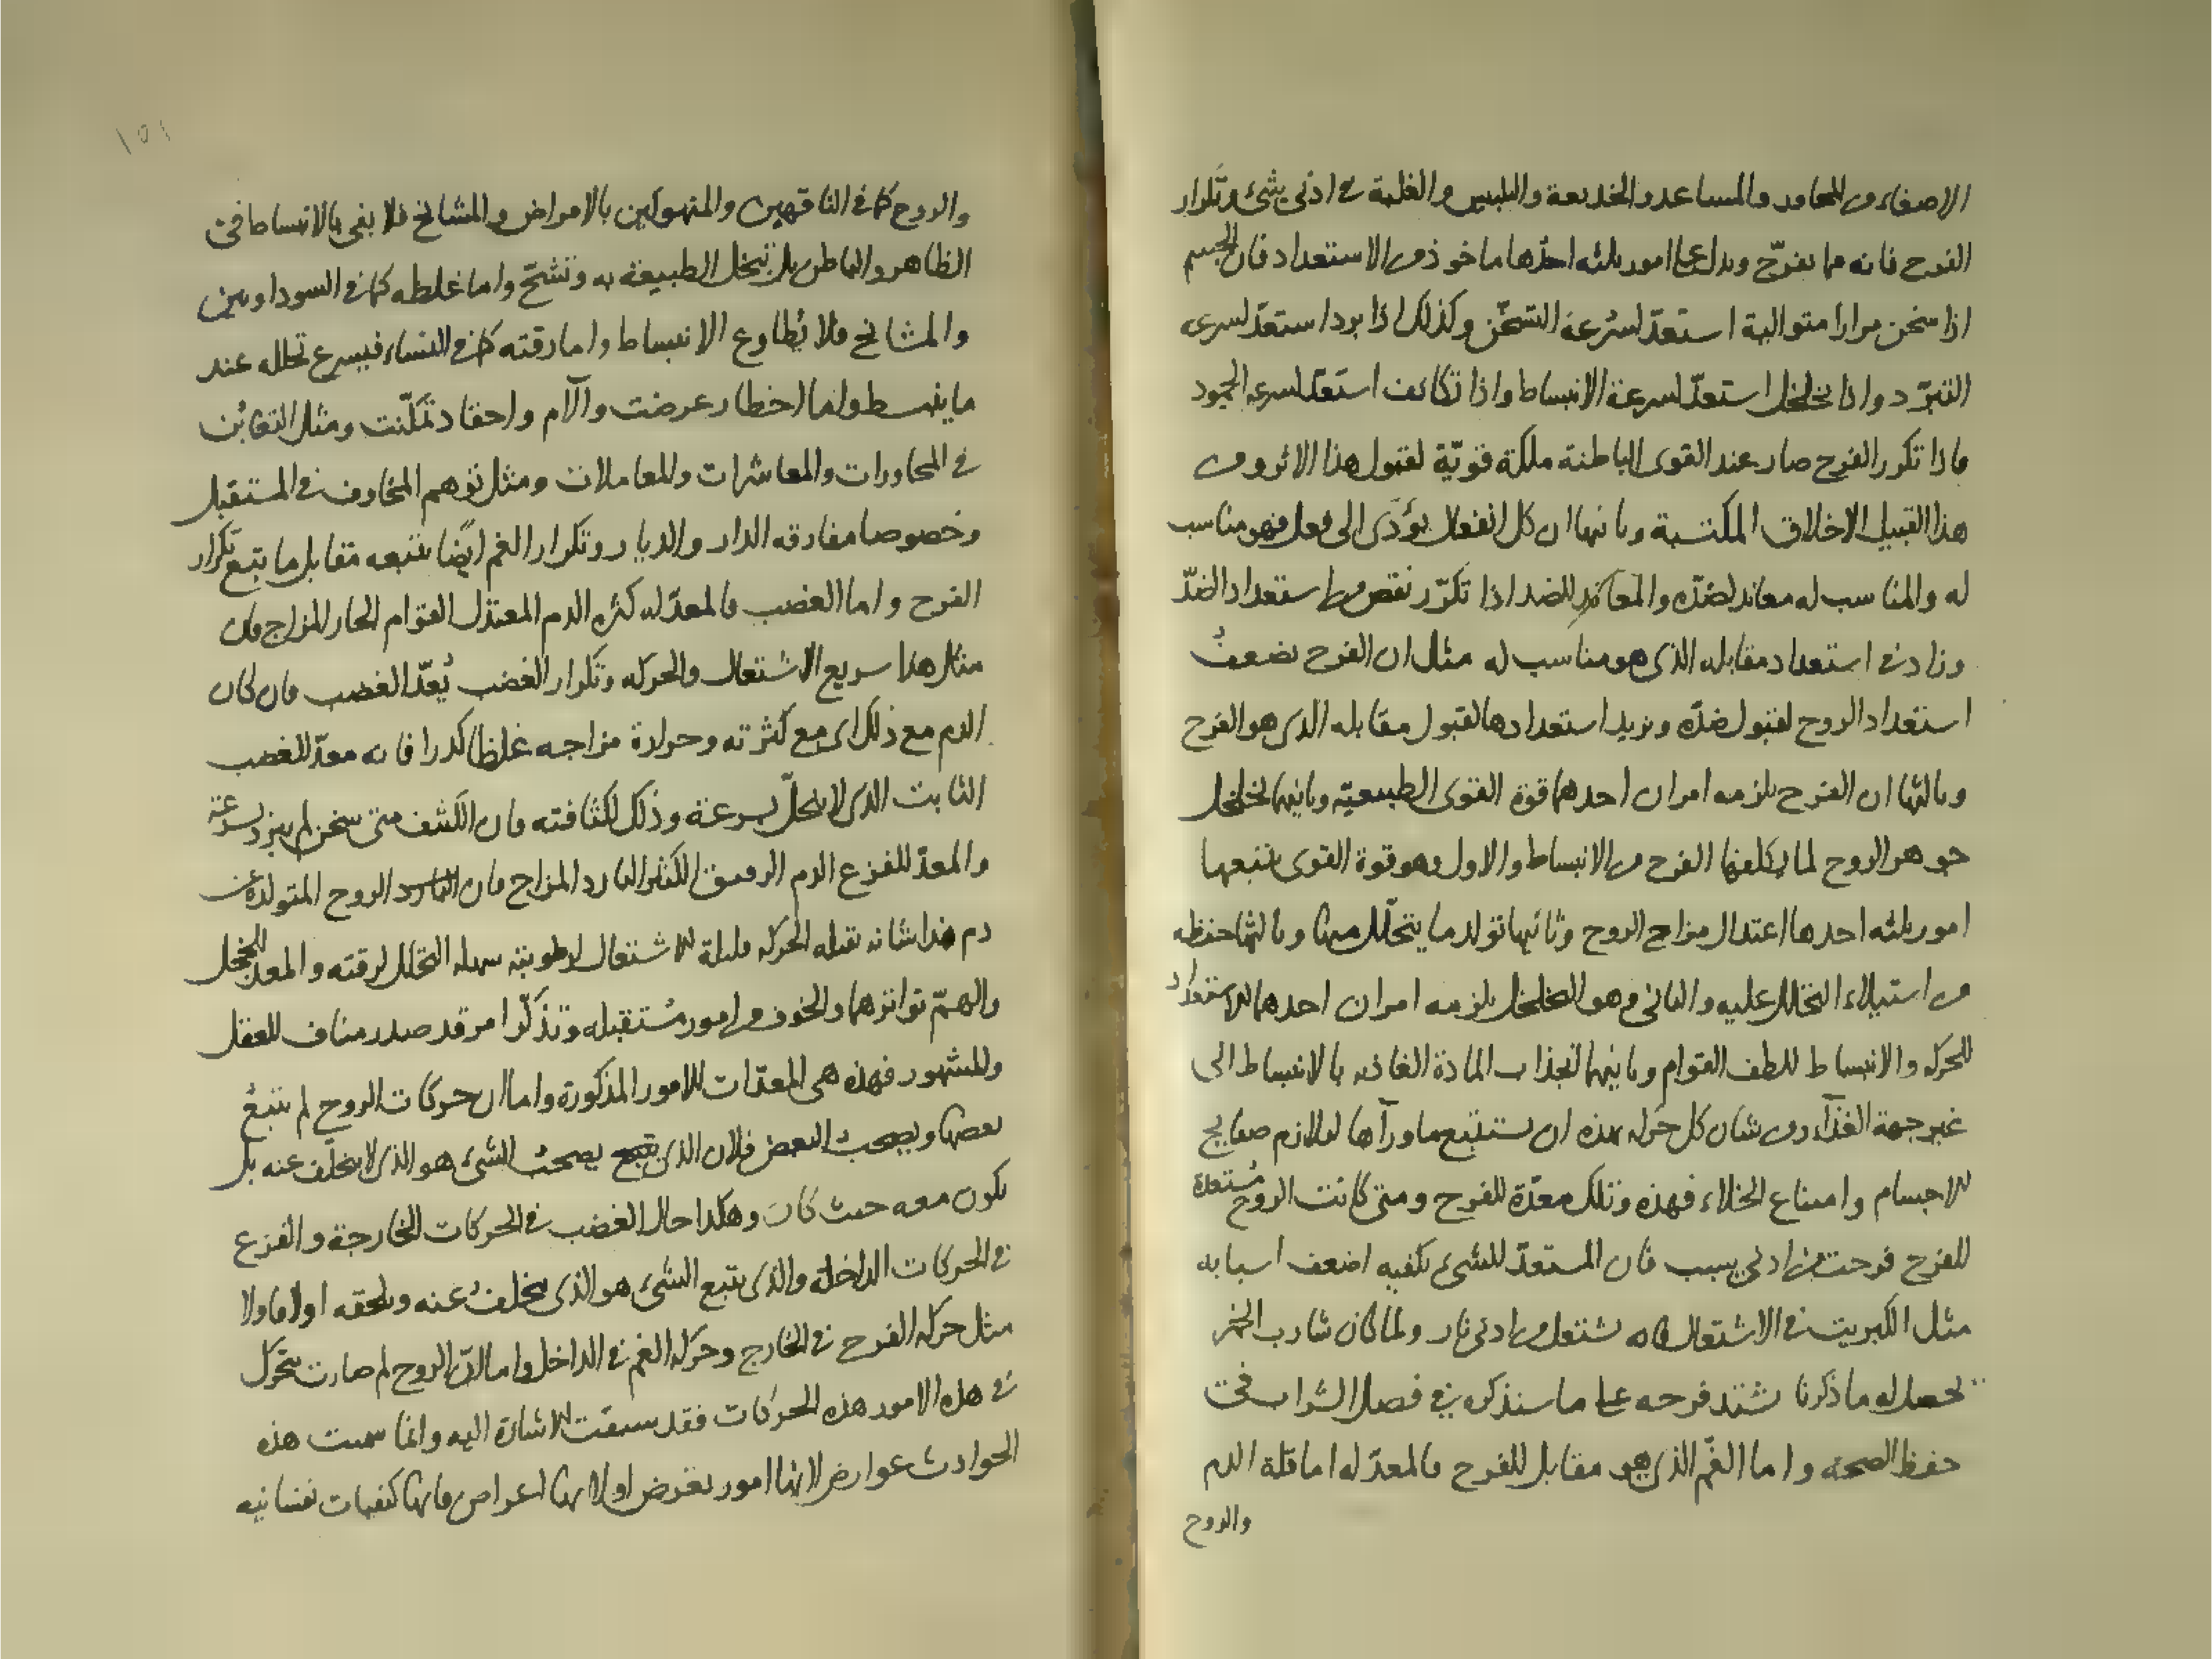 الاصغاء من المحاور والمساعد والخديعة والتلبيس والغلبة في ادنى شئ وتكرار
الفرح فانه مما يفرّح ويدل على امور ثلثه احدها ماخوذ من الاستعداد فان الجسم
اذا سخن مرارا متوالية استعدّ لسرعة التسخّن وكذلك اذا برد استعدّ لسرعه
التبرّد واذا تخلخل استعدّ لسرعة الانبساط واذا تكاثف استعدّ لسرعه الجمود
فاذا تكرر الفرح صار عند القوى الباطنة ملكة قويّة لقبول هذا الاثر ومن
هذا القبيل الاخلاق المكتسبة وثانيها ان كل انفعال يؤدّى الى فعل فهو مناسب
له والمناسب له معاند لضدّه والمعاند للضد اذا تكرّر نقص من استعداد الضدّ
وزاد في استعداد مقابله الذى هو مناسب له مثل ان الفرح يضعفُ
استعداد الروح لقبول ضدّه ويزيد استعدادها لقبول مقابله الذى هو الفرح
وثالثها ان الفرح يلزمه امران احدهما قوة القوى الطبيعيّه وثانيهما تخلخل
جوهر الروح لما يكلفها الفرح من الانبساط والاول وهو قوة القوى يتبعها
امور ثلثه احدها اعتدال مزاج الروح وثانيها تولد ما يتحلّل منها وثالثها حفظه
من استيلاء التحلل عليه والثانى وهو التخلخل يلزمه امران احدهما الاستعداد
للحركه والانبساط للطف القوام وثانيهما انجذاب المادة الغاذيه بالانبساط الى
غير جهة الغذآء ومن شان كل حركه بهذه ان يستتبع ماورآها لتلازم صفايح
الاجسام وامتناع الخلاء فهذه وتلك معدّة للفرح ومتى كانت الروح مستعدة
للفرح فرحت من ادنى سبب فان المستعدّ للشئ يكفيه اضعف اسبابه
مثل الكبريت في الاشتعال فانه يشتعل من ادنى نار ولما كان شارب الخمر
يحصل له ما ذكرنا يشتد فرحه على ما سنذكره في فصل الشراب في
حفظ الصحه واما الغمّ الذى هو مقابل للفرح فالمعدّ له اما قلة الدم
والروح
والروح كما في الناقهين والمنهوكين بالامراض والمشائخ فلا يفى بالانبساط في
الظاهر والباطن بل تبخل الطبيعة به وتشحّ واما غلظه كما في السوداويين
والمشائخ فلا يُطاوع الانبساط واما رقته كما في النساء فيسرع تحلله عند
ما ينبسط واما اخطار عرضت وآلآم واحقاد تمكّنت ومثل التغابُن
في المحاورات والمعاشرات والمعاملات ومثل توهم المخاوف في المستقبل
وخصوصا مفارقه الدار والديار وتكرار الغم ايضًا يتبعه مقابل ما يتبع تكرار
الفرح واما الغضب فالمعدّ له كثره الدم المعتدل القوام الحار المزاج فان
مثل هذا سريع الاشتعال والحركه وتكرار الغضب يُعدّ الغضب فان كان
الدم مع ذلك اى مع كثرته وحرارة مزاجه غلظا كدرا فانه معدّ للغضب
الثابت الذى لا ينحلّ بسرعة وذلك لكثافته فان الكثيف متى سخن لم يبرد بسرعة
والمعدّ للفزع الدم الرقيق الكثير البارد المزاج فان الروح المتولده عن
دم هذا شانه ثقيله الحركه قليلة الاشتعال لرطوبته سهله التحلل لرقته والمعدّ للخجل
والهمّ تواترهما والخوف من امور مُستقبله وتذكّر امر قد صدر مناف للعقل
والمشهور فهذه هى المعدّات للامور المذكورة واما ان حركات الروح لم يتبعُ
بعضها ويصحب البعض فلان الذى يصحبُ الشئ هو الذى لا يتخلّف عنه بل
يكون معه حيث كان وهكذا حال الغضب في الحركات الخارجة والفزع
في الحركات الداخله والذى يتبع الشئ هو الذى يتخلفُ عنه ويلحقه اولا فاولا
مثل حركه الفرح في الخارج وحركه الغم في الداخل واما انّ الروح لم صارت تتحرّك
في هذه الامور هذه الحركات فقد سبقت الاشارة اليه وانما سميت هذه
الحوادث عوارض لانها امور تعرض اولا لانها اعراض فانها كيفيات نفسانيه